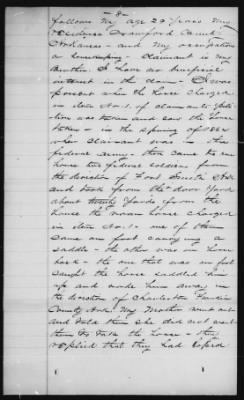 -2-
follows My age 29 years my
residence Crawford County
Arkansas - and my occupation
a housekeeping - claimant is my
brother. I have no
interest in the claim - I was
present when the horse charged
in item No. 1. of claimants petition
was taken and saw the horse
taken - in the spring of 1864
when claimant was in the
federal army - there came to our
house two federal soldiers from
the direction of Fort Smith Ark
and took from the door yard
about twenty yards from the
house the roan horse charged
in item No. 1 - one of them
came on foot carrying a
saddle - the other was on horse
back - the one that was on foot
caught the horse saddled him
up and rode him away in
the direction of Charleston Franklin
County Ark. My Mother went out
and told them she did not want
them to take the horse - they
replied that they had